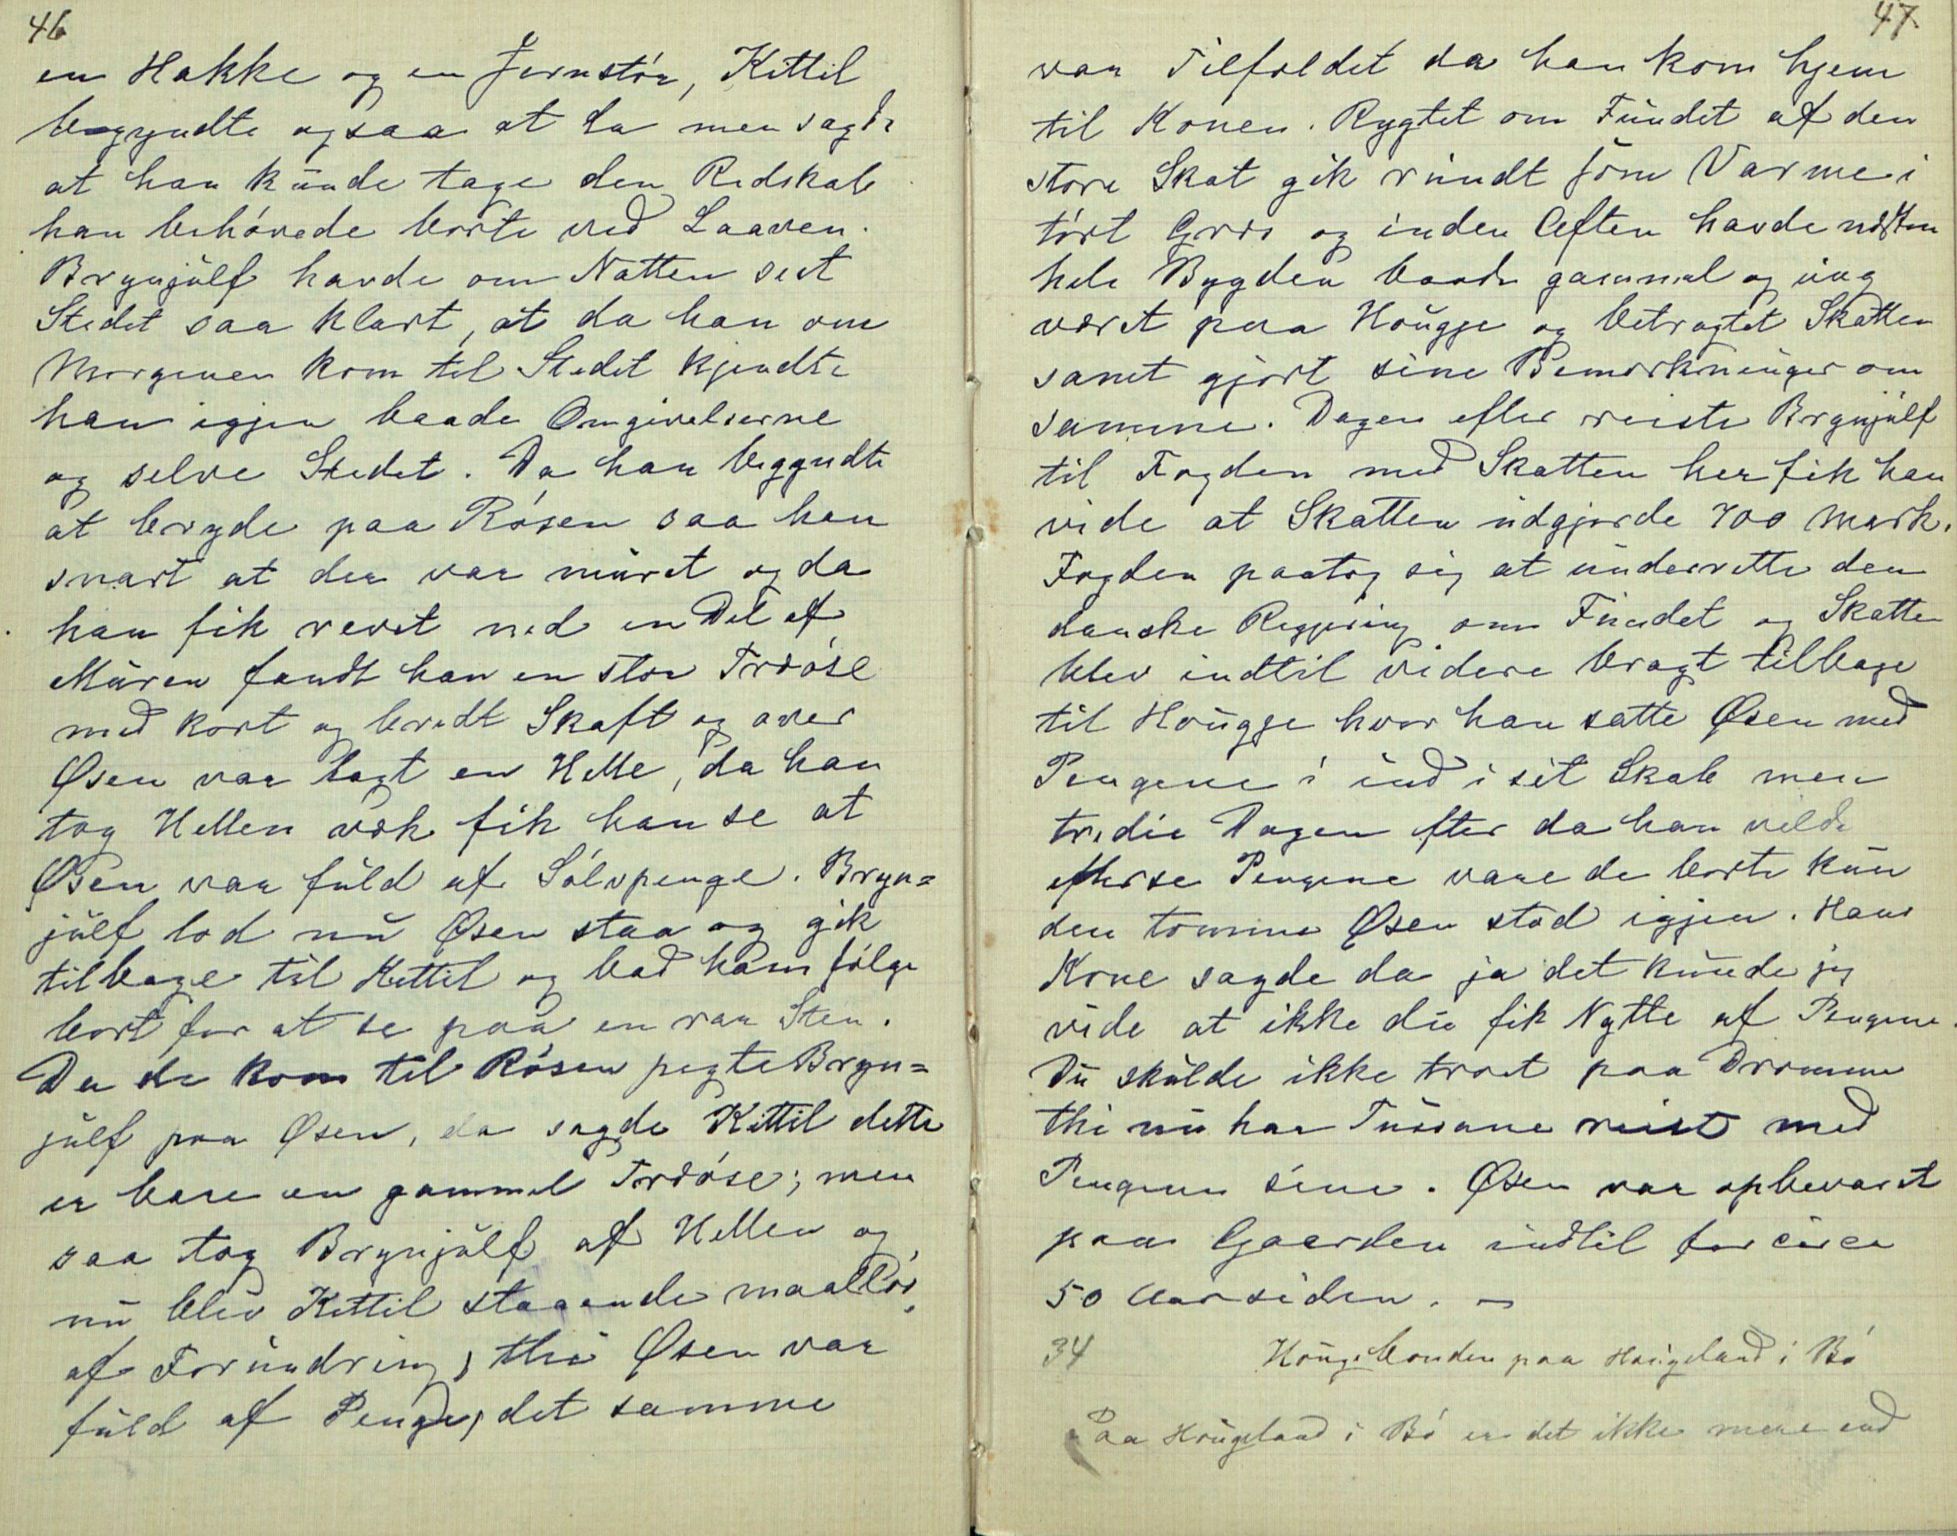 46
en Hakke og en Jernstör, Kittil
begyndte ogsaa at le men sagde
at han kunde tage den Redskab
han behövede borte ved Laaven.
Brynjulf havde om Natten seet
Stedet saa klart, at da han om
Morgenen kom til Stedet kjendte
han igjen baade Omgivelserne
og selve Stedet. Da han begyndte
at bryde paa Rösen saa han
snart at der var muret og da
han fik revet ned en Del af
Muren fandt han en stor Træöse
med kort og bredt Skaft og over
Øsen var lagt en Helle, da han
tog Hellen væk fik han se at
Øsen var fuld af Sölvpenge. Bryn=
julf lod nu Øsen staa og gik
tilbage til Kittil og bad ham fölge
bort for at se paa en rar Sten.
Da de kom til Rösen pegte Bryn=
julf paa Øsen, da sagde Kittil dette
er bare en gammel Træöse; men
saa tog Brynjulf af Hellen og
nu blev Kittil staaende maallös
af Forundring, thi Øsen var
fuld af Penge, det samme
47
var Tilfeldet da han kom hjem
til Konen. Rygtet om Fundet af den
store Skat gik rundt som Varme i
tört Græs og inden Aften havde næsten
hele Bygden baade gammel og ung
været paa Hougje og betragtet Skatten
samt gjort sine Bemærkninger om
samme. Dagen efter reiste Brynjulf
til Fogden med Skatten her fik han
vide at Skatten udgjorde 700 Mark.
Fogden paatog sig at underrette den
danske Regjering om Fundet og Skatten
blev indtil videre bragt tilbage
til Hougje hvor han satte Øsen med
Pengene i ind i sit Skab men
tredie Dagen efter da han vilde
efterse Pengene vare de borte kun
den tomme Øsen stod igjen. Hans
Kone sagde da ja det kunde jeg
vide at ikke du fik Nytte af Pengene.
Du skulde ikke troet paa Drömme
thi nu har Tussane reist med
Pengene sine. Øsen var opbevaret
paa Gaarden indtil for circa
50 Aar siden. –
34 Hougebonden paa Hougeland i Bö
Paa Hougeland i Bö er det ikke mere end